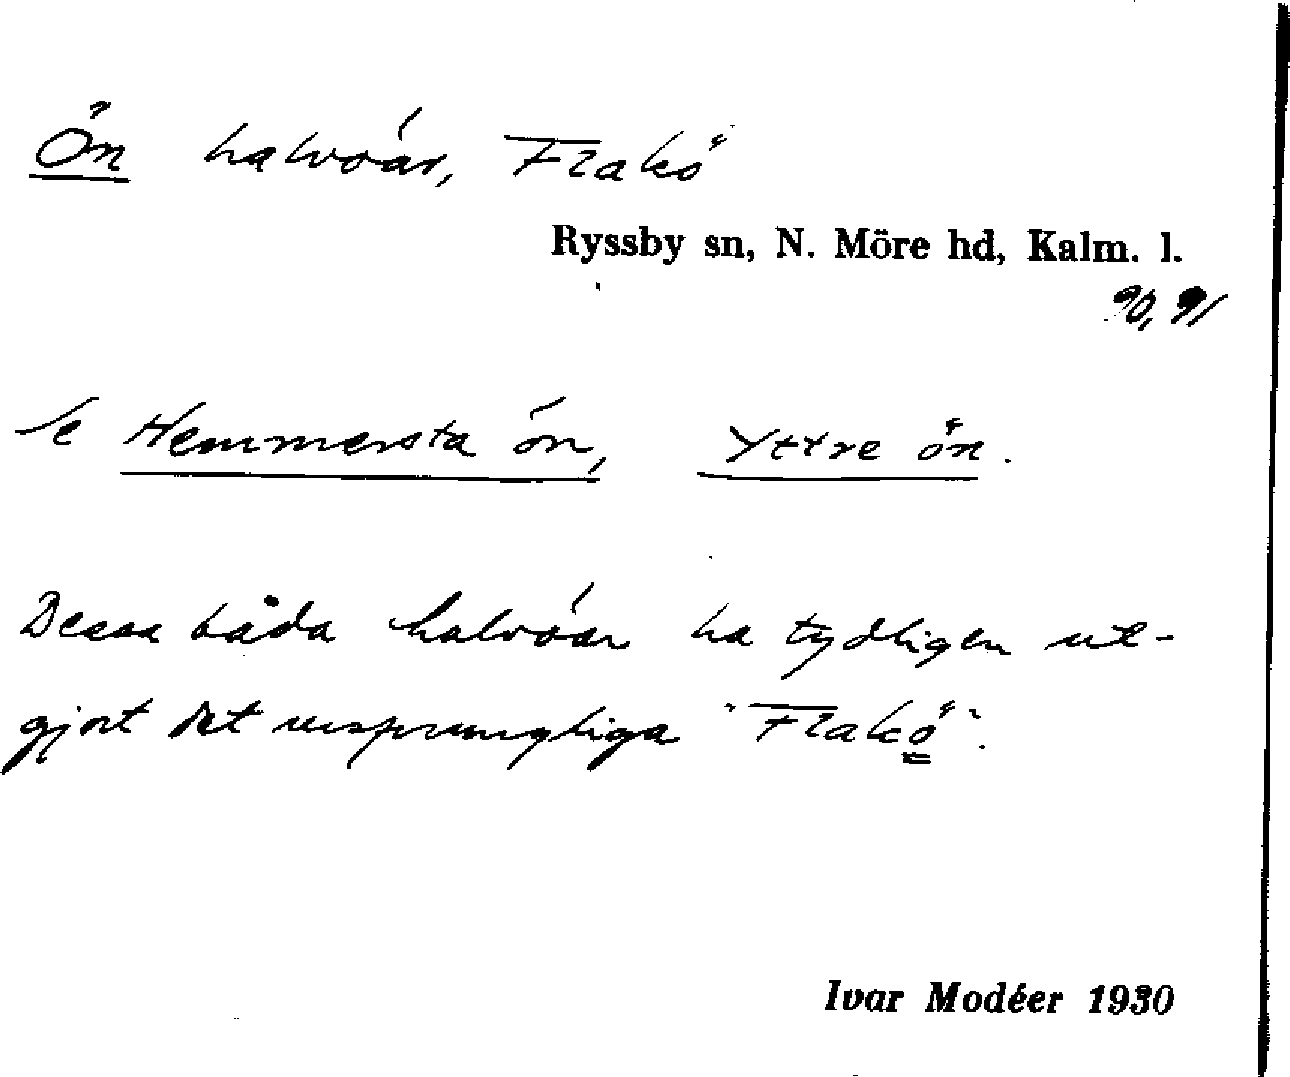 Ön halvöar, Flakö
Ryssby sn, N. Möre hd, Kalm. l.
90, 91
Se Hemmersta ön, Yttre ön.
Dessa båda halvöar ha tydligen ut-
gjort det ursprungliga "Flakö".
Ivar Modéer 1930